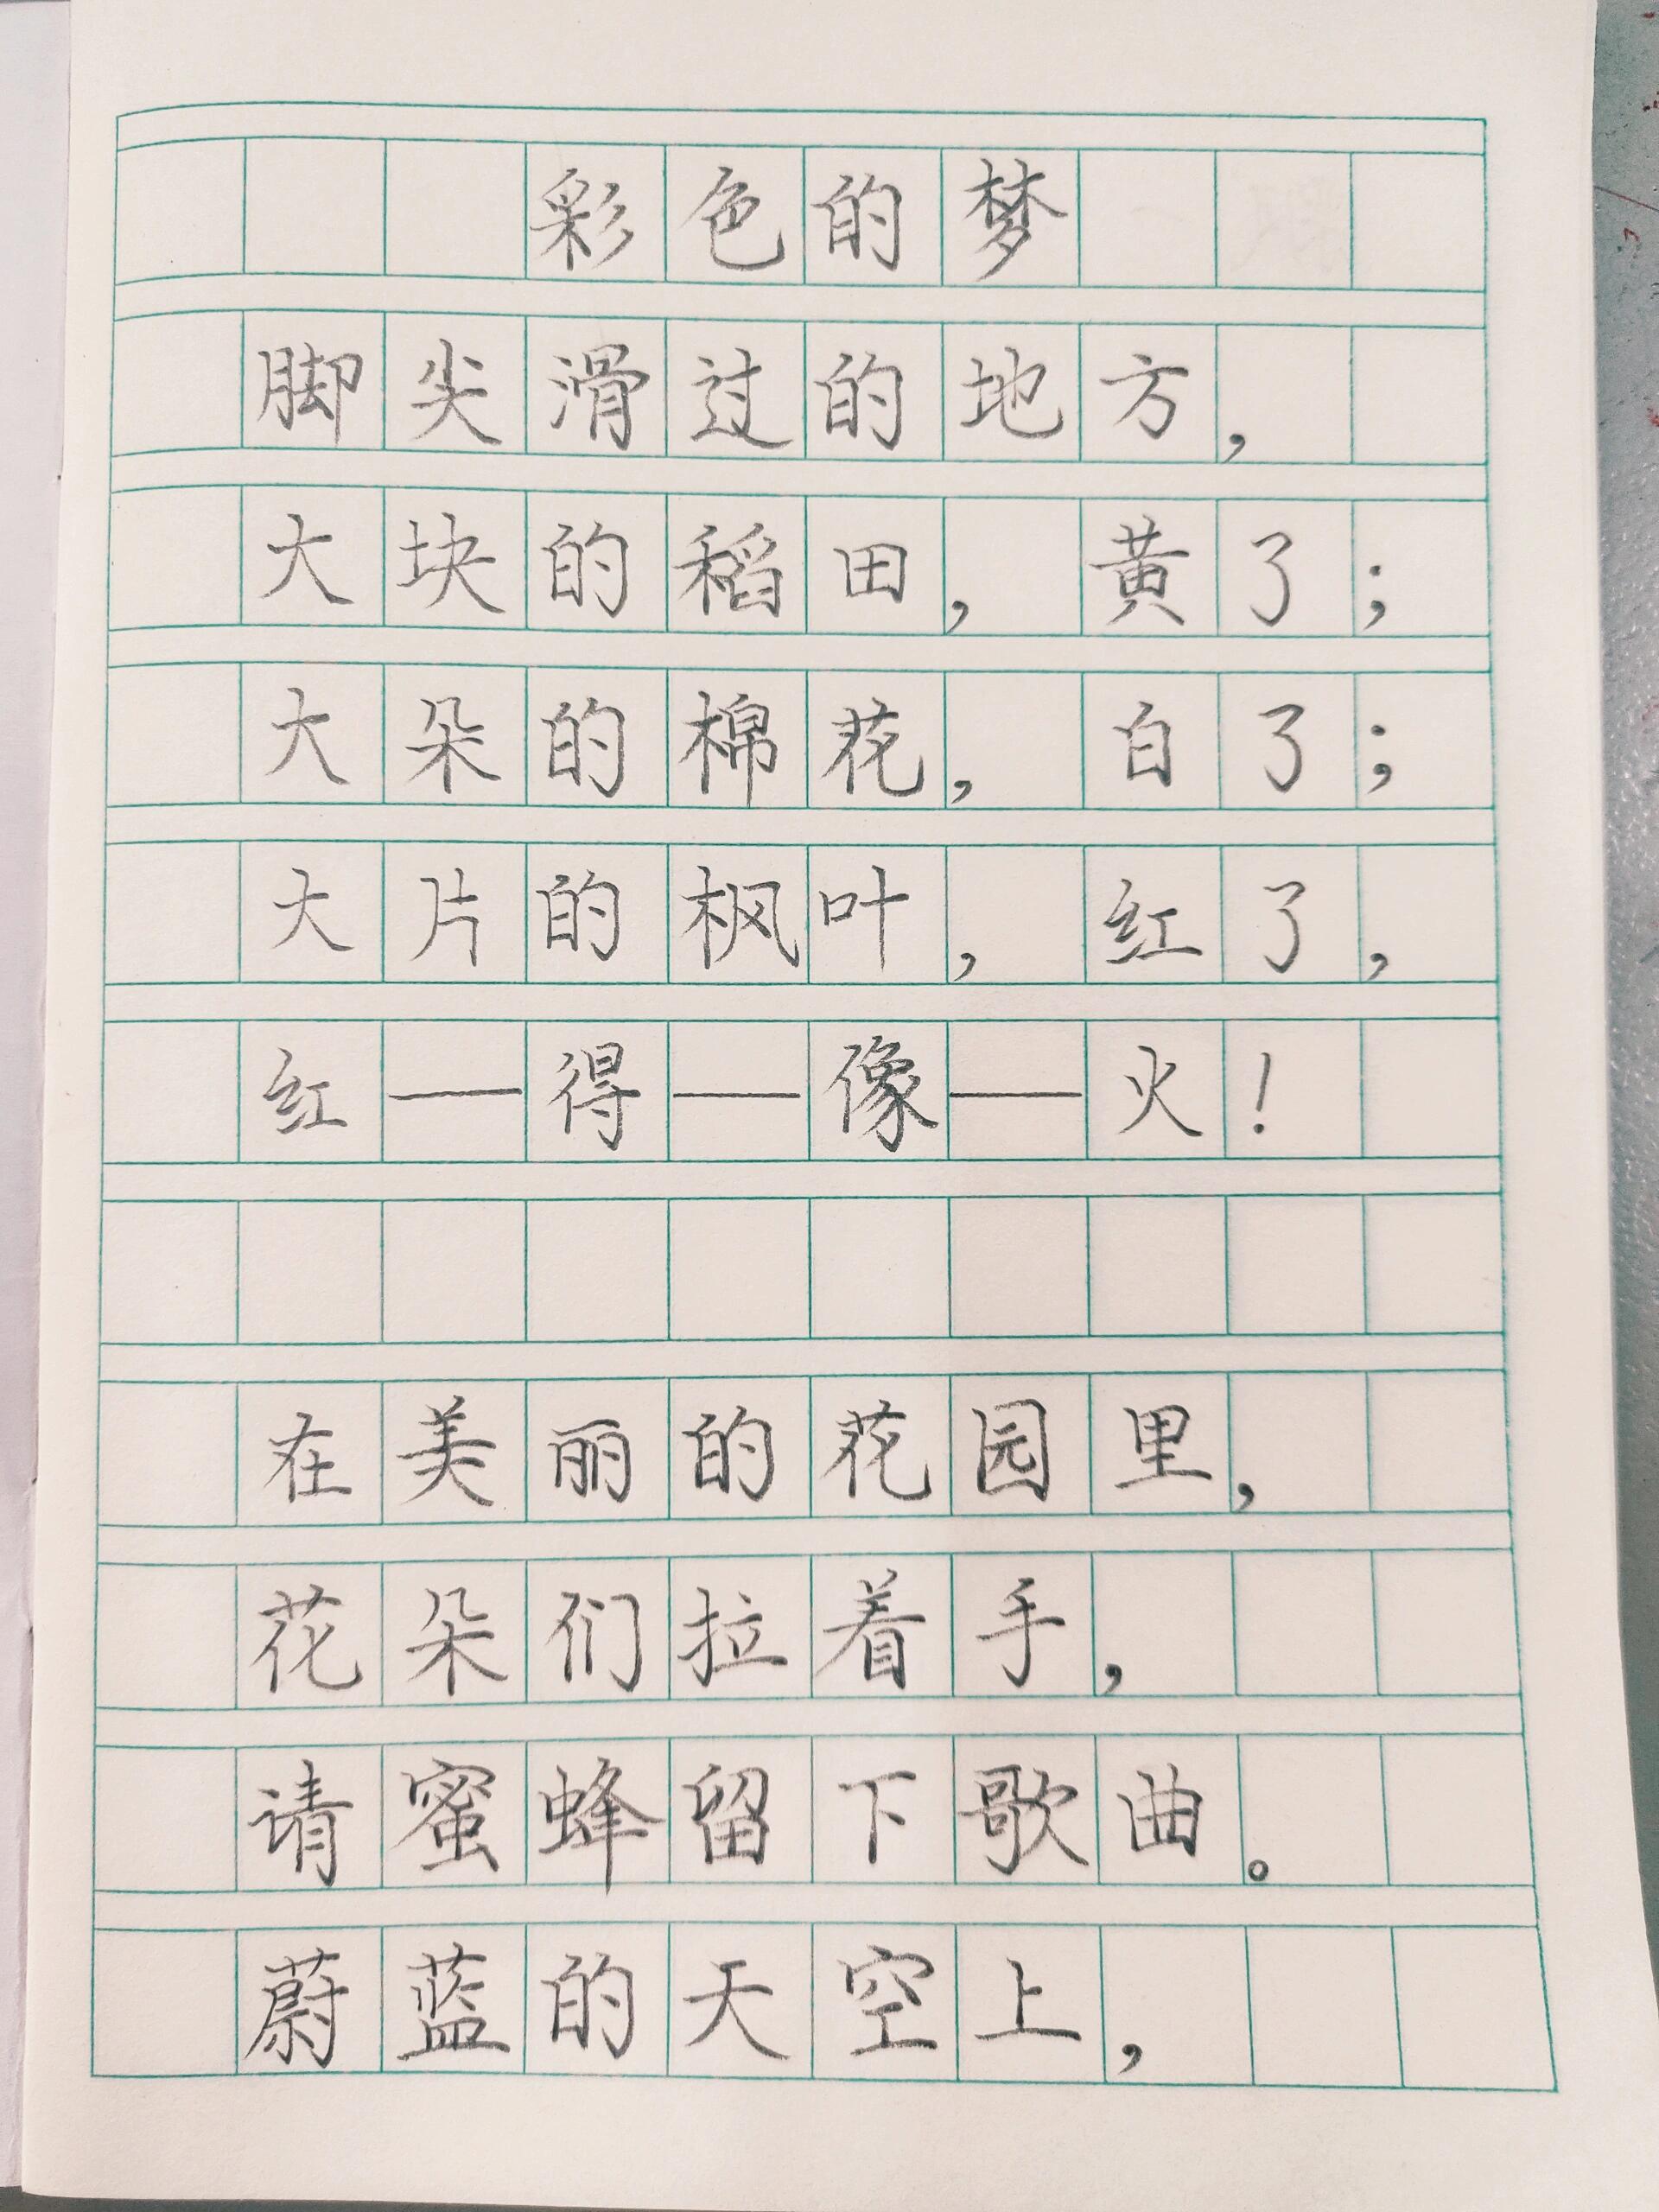 彩色的梦
脚尖滑过的地方，
大块的稻田，黄了；
大朵的棉花，白了；
大片的枫叶，红了，
红—得—像—火！
在美丽的花园里，
花朵们拉着手，
请蜜蜂留下歌曲。
蔚蓝的天空上，